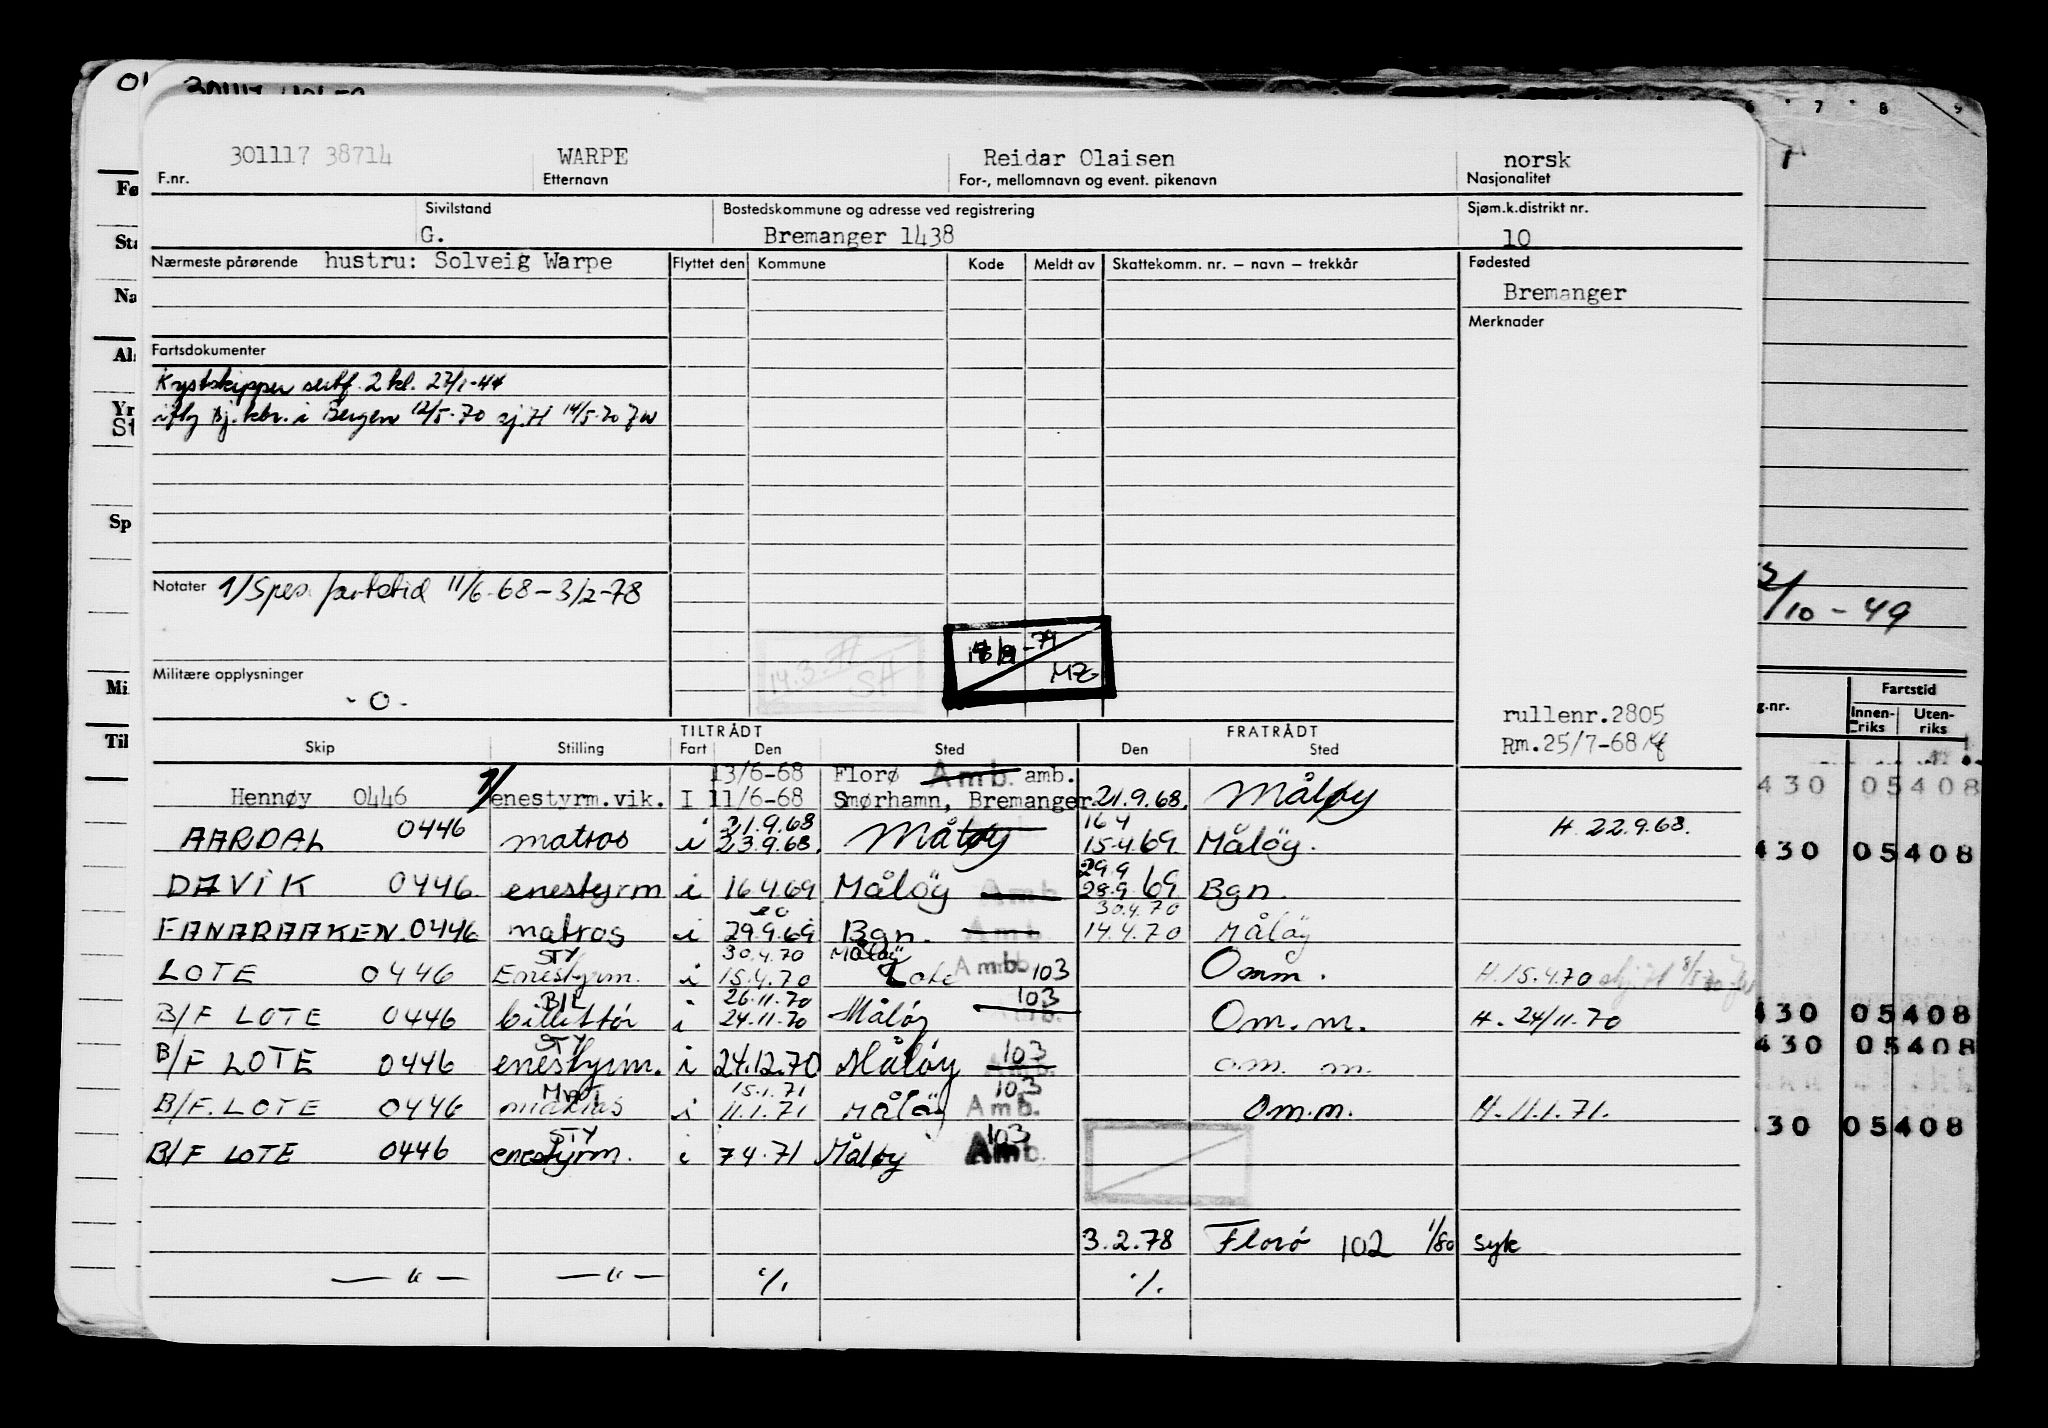 301117 38714 WARPE Reidar Olaisen norsk
F.nr. Etternavn For-, mellomnavn og event. pikenavn Nasjonalitet
Sivilstand Bostedskommune og adresse ved registrering Sjøm.k.distrikt nr.
G. Bremanger 1438 10
Nærmeste pårørende hustru: Solveig Warpe Flyttet den Kommune Kode Meldt av Skattekomm. nr. – navn – trekkår Fødested
Bremanger
Merknader
Fartsdokumenter
Kystskipper sertf. 2 kl. 27/1-44
iflg Bj. kbr. i Bergen 12/5-70 sj.H 14/5-70
Notater 1/ Spes. fartstid 11/6-68 – 3/2-78
14.3.77 SH
-79 MZ
Militære opplysninger
- 0 -
rullenr.2805
Rm.25/7-68
TILTRÅDT FRATRÅDT
Skip Stilling Fart Den Sted Den Sted
13/6-68 Florø Amb. amb.
Hennøy 0446 1/ enestyrm.vik. I 11/6-68 Smørhamn, Bremanger 21.9.68. Måløy
21.9.68 16 4 H. 22.9.68.
AARDAL 0446 matros i 23.9.68. Måløy 15.4.69 Måløy.
29.9
DAVIK 0446 enestyrm i 16.4.69 Måløy Amb 28.9.69 Bgn.
30.4.70
FANARAAKEN. 0446 matros i 29.9.69 Bgn. Amb 14.4.70 Måløy
STY 30.4.70 Måløy
LOTE 0446 Enestyrm. i 15.4.70 Lote Amb. 103 Omm. H. 15.4.70
B/L 26.11.70 103
B/F LOTE 0446 billettør i 24.11.70 Måløy Omm. H. 24/11.70
STY 103
B/F LOTE 0446 enestyrm. i 24.12.70 Måløy om. m.
MAT 15.1.71 103
B/F. LOTE 0446 matros i 11.1.71 Måløy Amb. Om.m. H. 11.1.71.
STY 103
B/F LOTE 0446 enestyrm. i 7.4.71 Måløy Amb.
3.2.78 Florø 102 1/80 syk
— " — — " — ·/. ·/.
Sp
Mi.
Til
/10 - 49
g.nr. Fartstid
Innenriks Utenriks
430 05408
430 05408
430 05408
430 05408
30 05408